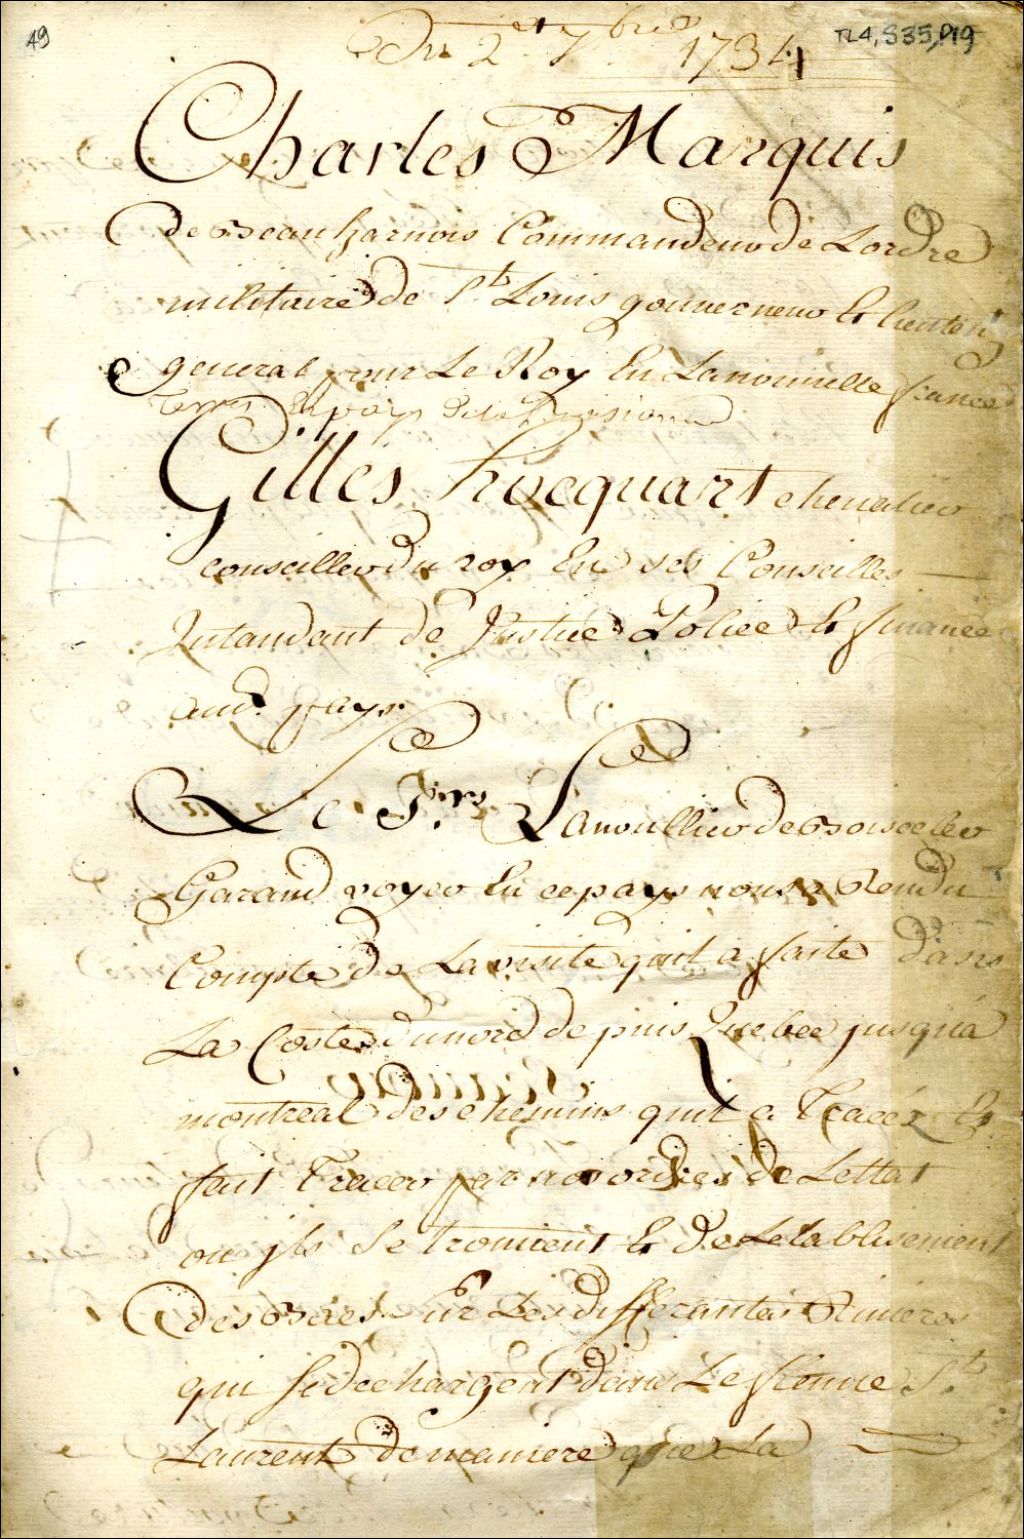 49
TL4, S35, P19
Du 2e 7bre 1734
Charles Marquis
de Beauharnois Commandeur de Lordre
militaire de St. Louis gouverneur Et lieuten
general pour Le Roy En Lanouuelle france
Terres Et pays de la Louisianne
Gilles hocquart cheualier
conseiller du roy En ses Conseilles
Intandant de Justice Police Et finance
aud. pays
Le Sr. Lanoullier de Boiscler
Garand voyer En ce pays nous a Rendu
Compte de La visite quil a faite dans
La Coste du nord depuis Quebec jusqua
montreal des chemins quil a Tracéz Et
fait Tracer par nos ordres de Lettat
ou jls se trouuent Et de Letablisement
des Bacs sur Les differantes Riuieres
qui se dechargent dans Le fleuue St.
Laurent de maniere que La